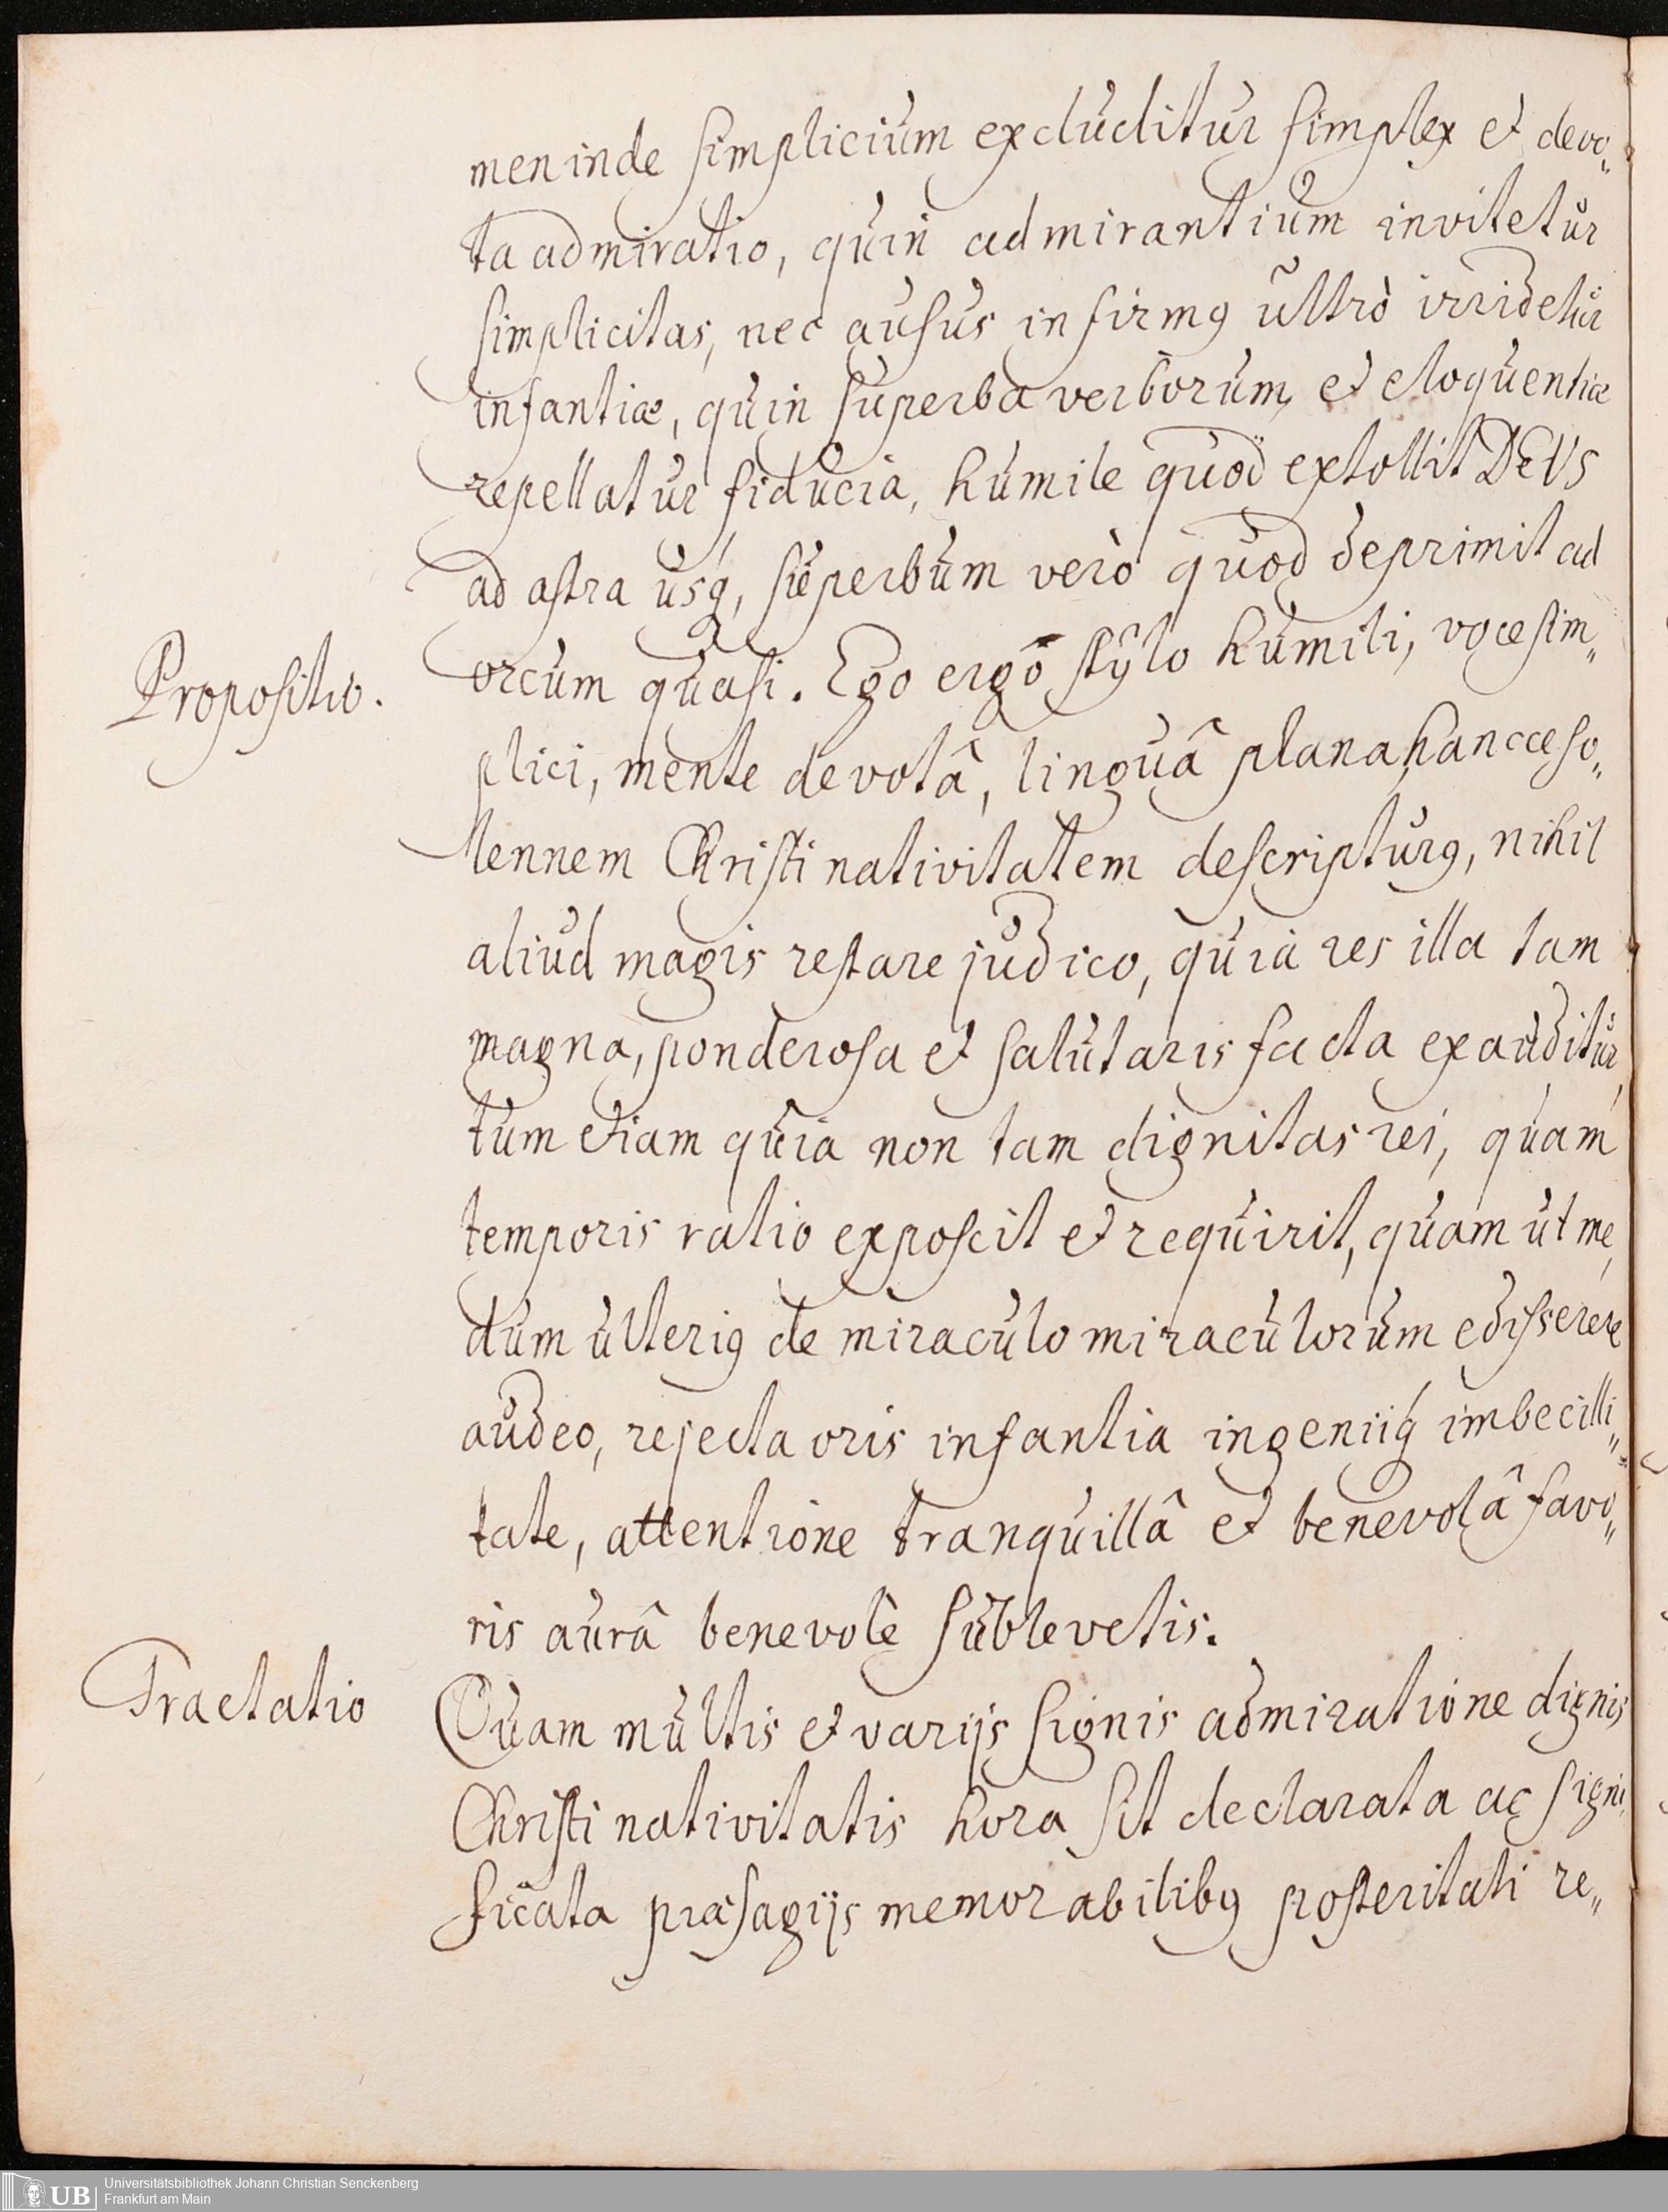 men inde simplicium excluditur simplex et devo„
ta admiratio, quin admirantium invitetur
simplicitas, nec ausus infirmꝰ ultrò irridetur
infantiæ, quin superba verborum et eloquentiæ
repellatur fiducia, humile quod extollit DEUS
ad astra usq́, superbum verò quod deprimit ad
Propositio.
orcum quasi. Ego ergò stylo humili, voce sim„
plici, mente devotâ, linguâ plana hancce so„
lennem Christi nativitatem descripturꝰ, nihil
aliud magis restare judico, quia res illa tam
magna, ponderosa et salutaris facta exauditur,
tum etiam quia non tam dignitas rei, quam
temporis ratio exposcit et requirit, quam ut me,
dum ulteriꝰ de miraculo miraculorum edisserere
audeo, rejecta oris infantia ingeniiq́ imbecilli„
tate, attentione tranquillâ et benevolâ favo„
ris aurâ benevolè sublevetis.
Tractatio
Quam multis et varijs signis admiratione dignis
Christi nativitatis hora sit declarata ac signi„
ficata præsagijs memorabilibꝰ posteritati re„
Universitätsbibliothek Johann Christian Senckenberg
UB
Frankfurt am Main